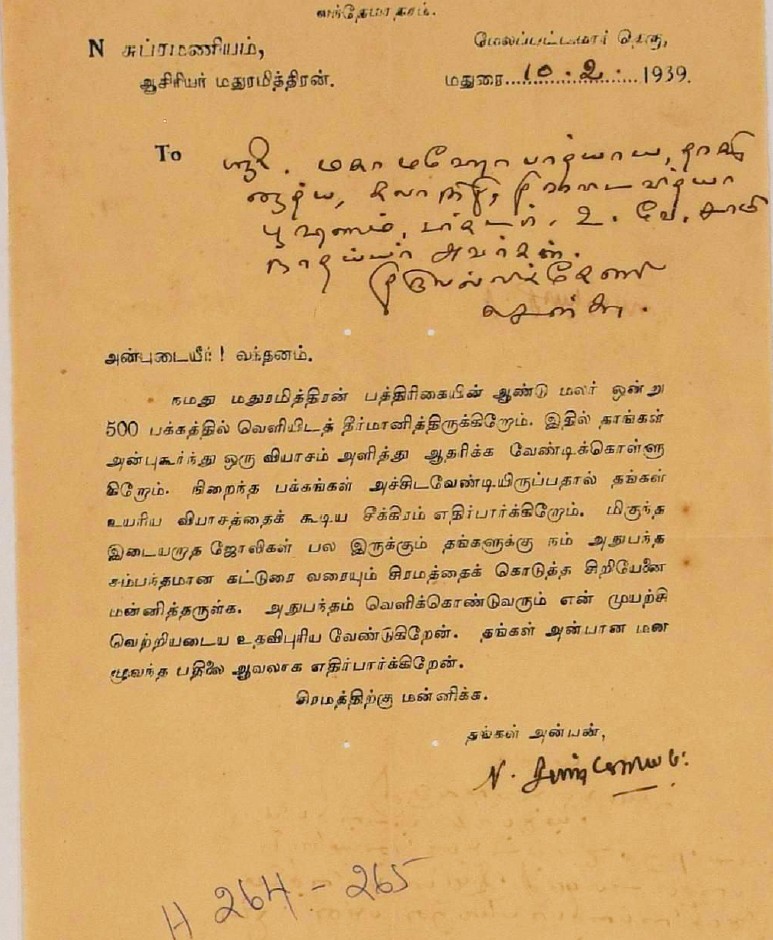 வந்தேமாதரம்.
N சுப்ரமணியம்,
ஆசிரியர் மதுரமித்திரன்.
மேலப்பட்டமார் தெரு,
மதுரை.....10.2.....1939.
To
ஸ்ரீ. மகாமஹோபாத்யாய, தாக்ஷி
ணாத்ய, கலாநிதி, திராவிட வித்யா
பூஷணம், டாக்டர். உ. வே. சாமி
நாதய்யர் அவர்கள்.
திருவல்லிக்கேணி
சென்னை.
அன்புடையீர்! வந்தனம்.
நமது மதுரமித்திரன் பத்திரிகையின் ஆண்டு மலர் ஒன்று
500 பக்கத்தில் வெளியிடத் தீர்மானித்திருக்கிறோம். இதில் தாங்கள்
அன்புகூர்ந்து ஒரு வியாசம் அளித்து ஆதரிக்க வேண்டிக்கொள்ளு
கிறோம். நிறைந்த பக்கங்கள் அச்சிடவேண்டியிருப்பதால் தங்கள்
உயரிய வியாசத்தைக் கூடிய சீக்கிரம் எதிர்பார்க்கிறோம். மிகுந்த
இடையறாத ஜோலிகள் பல இருக்கும் தங்களுக்கு நம் அதுபந்த
சம்பந்தமான கட்டுரை வரையும் சிரமத்தைக் கொடுத்த சிறியேனை
மன்னித்தருள்க. அதுபந்தம் வெளிக்கொண்டுவரும் என் முயற்சி
வெற்றியடைய உதவிபுரிய வேண்டுகிறேன். தங்கள் அன்பான மன
முவந்த பதிலை ஆவலாக எதிர்பார்க்கிறேன்.
சிரமத்திற்கு மன்னிக்க.
தங்கள் அன்பன்,
N. சுப்ரமணியம்
H 264 - 265